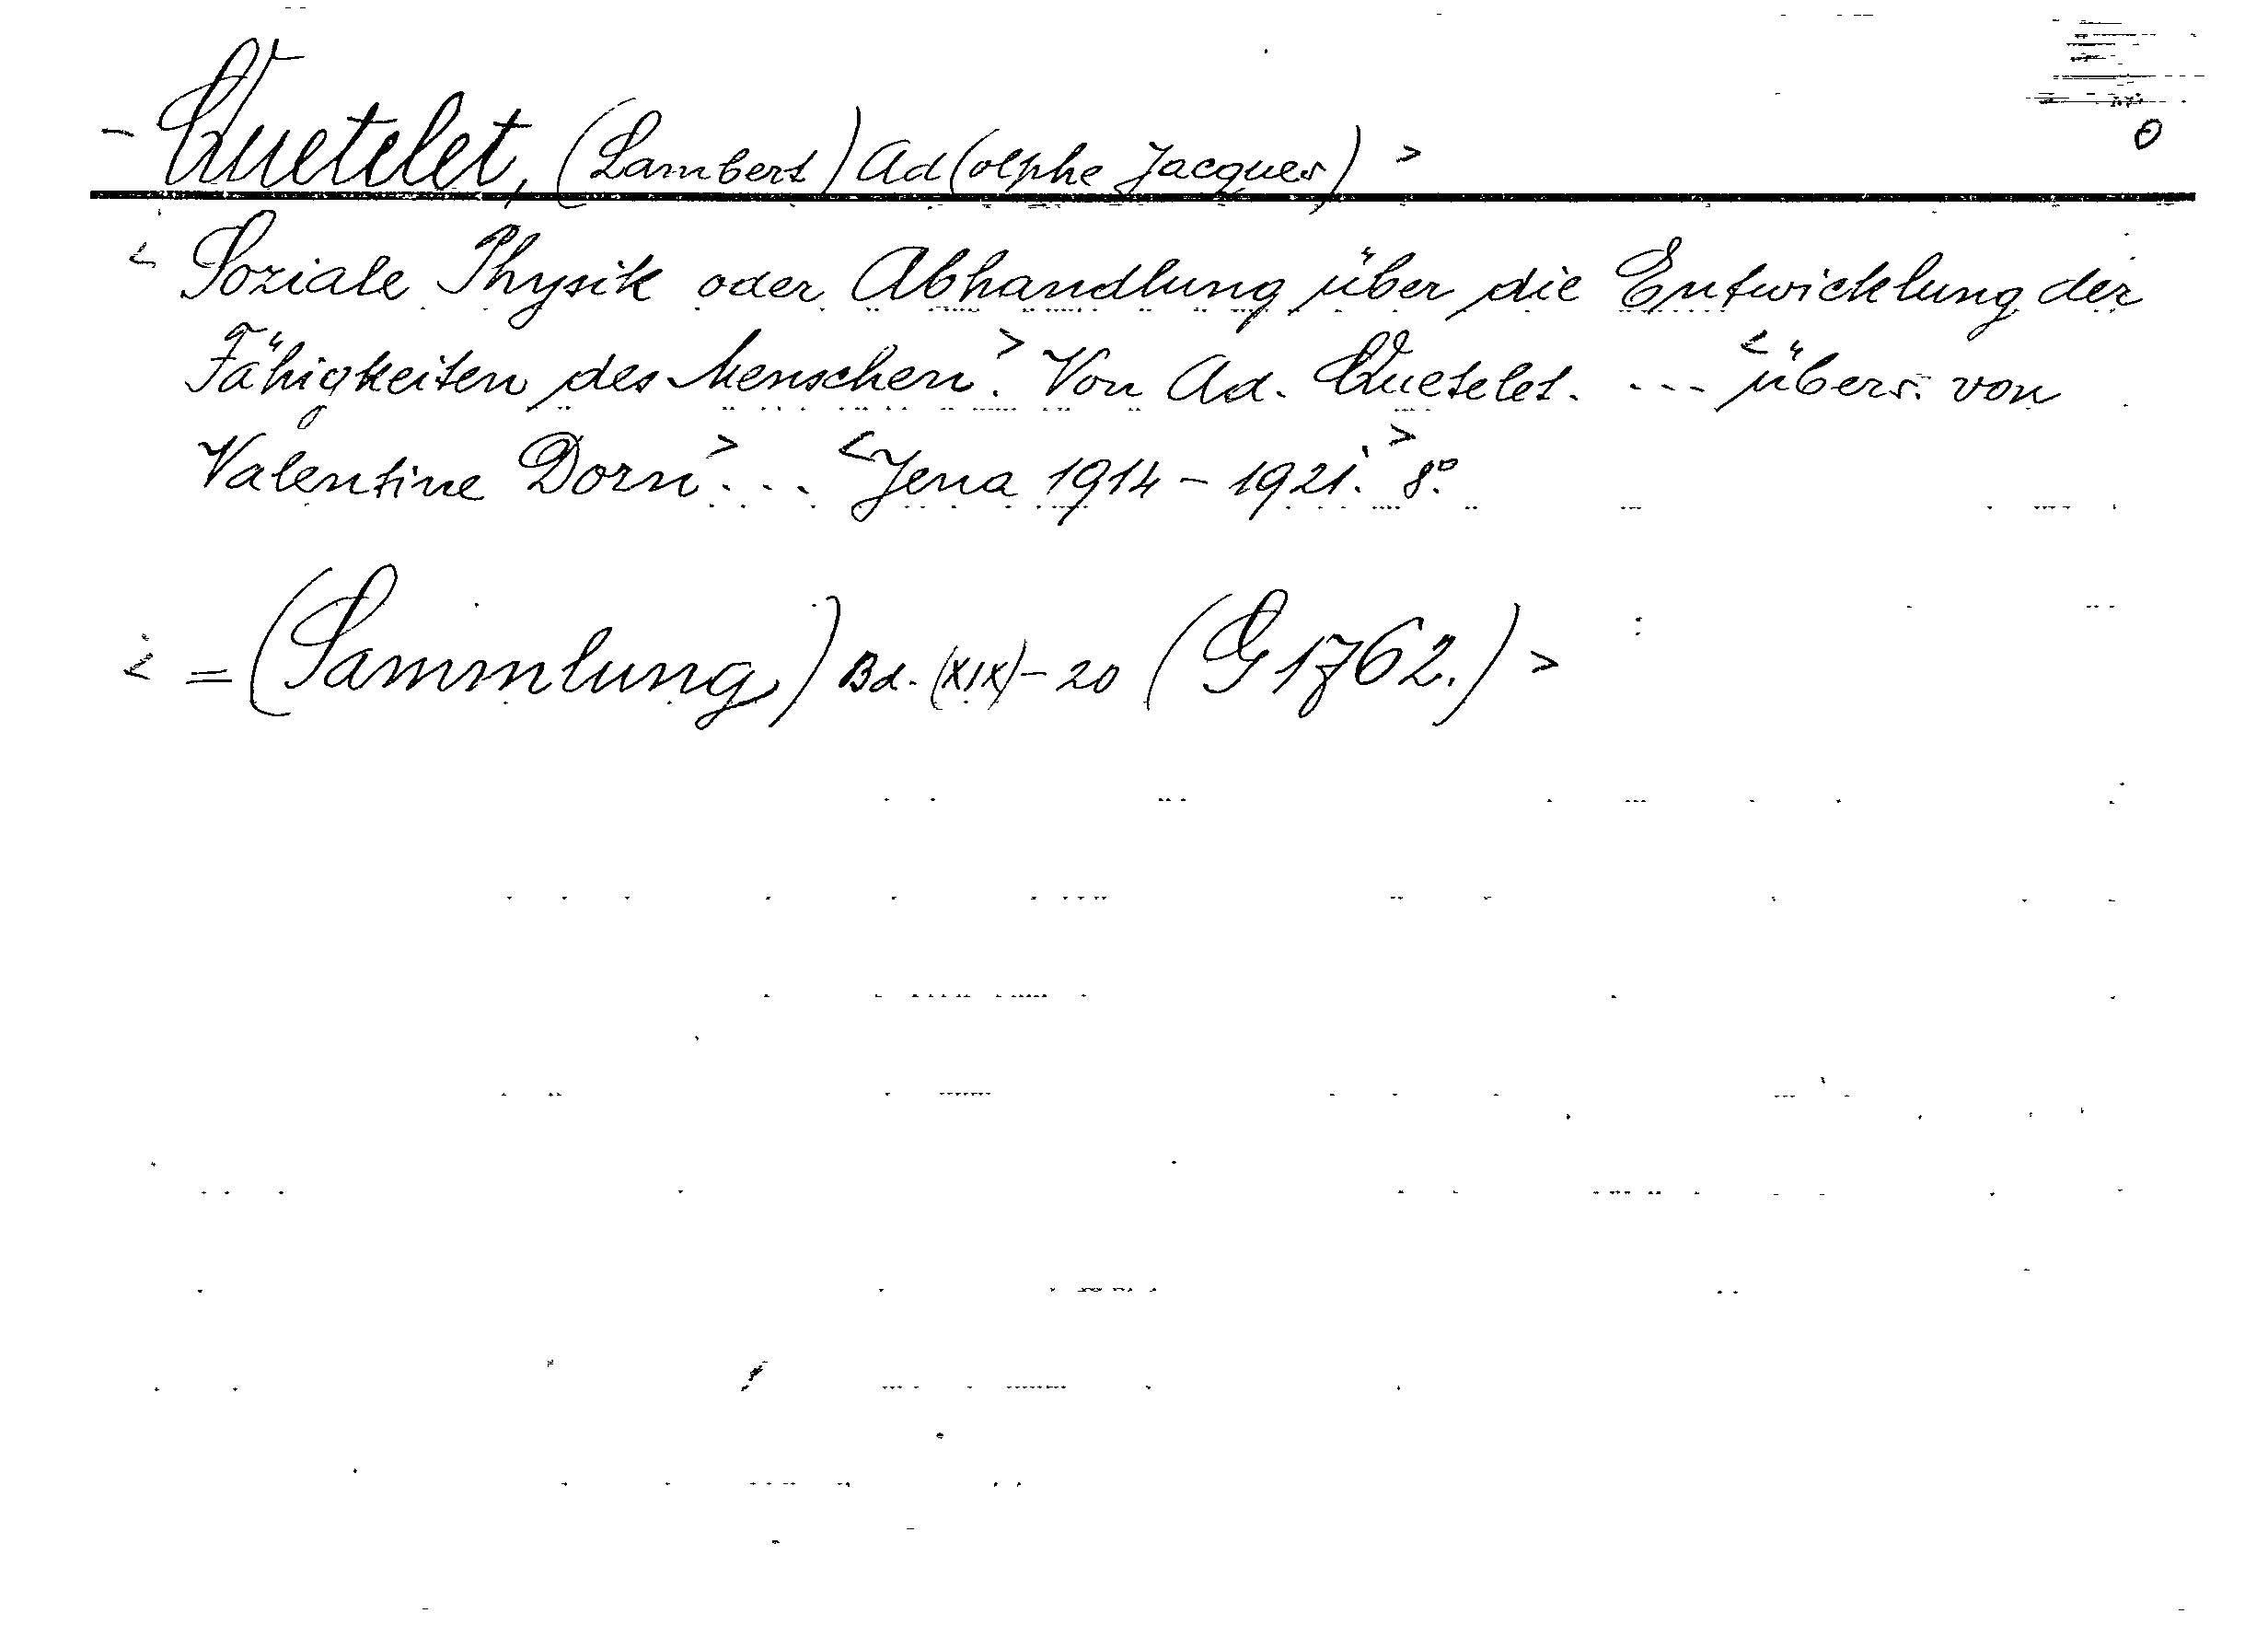 - Quetelet, (Lambert) Ad(olphe Jacques) >
< Soziale Physik oder Abhandlung über die Entwicklung der
Fähigkeiten des Menschen.> Von Ad. Quetelet. ... <übers. von
Valentine Dorn> ... <Jena 1914-1921.> 8°.
< = (Sammlung) Bd. (XIX)-20 (G 1762.) >